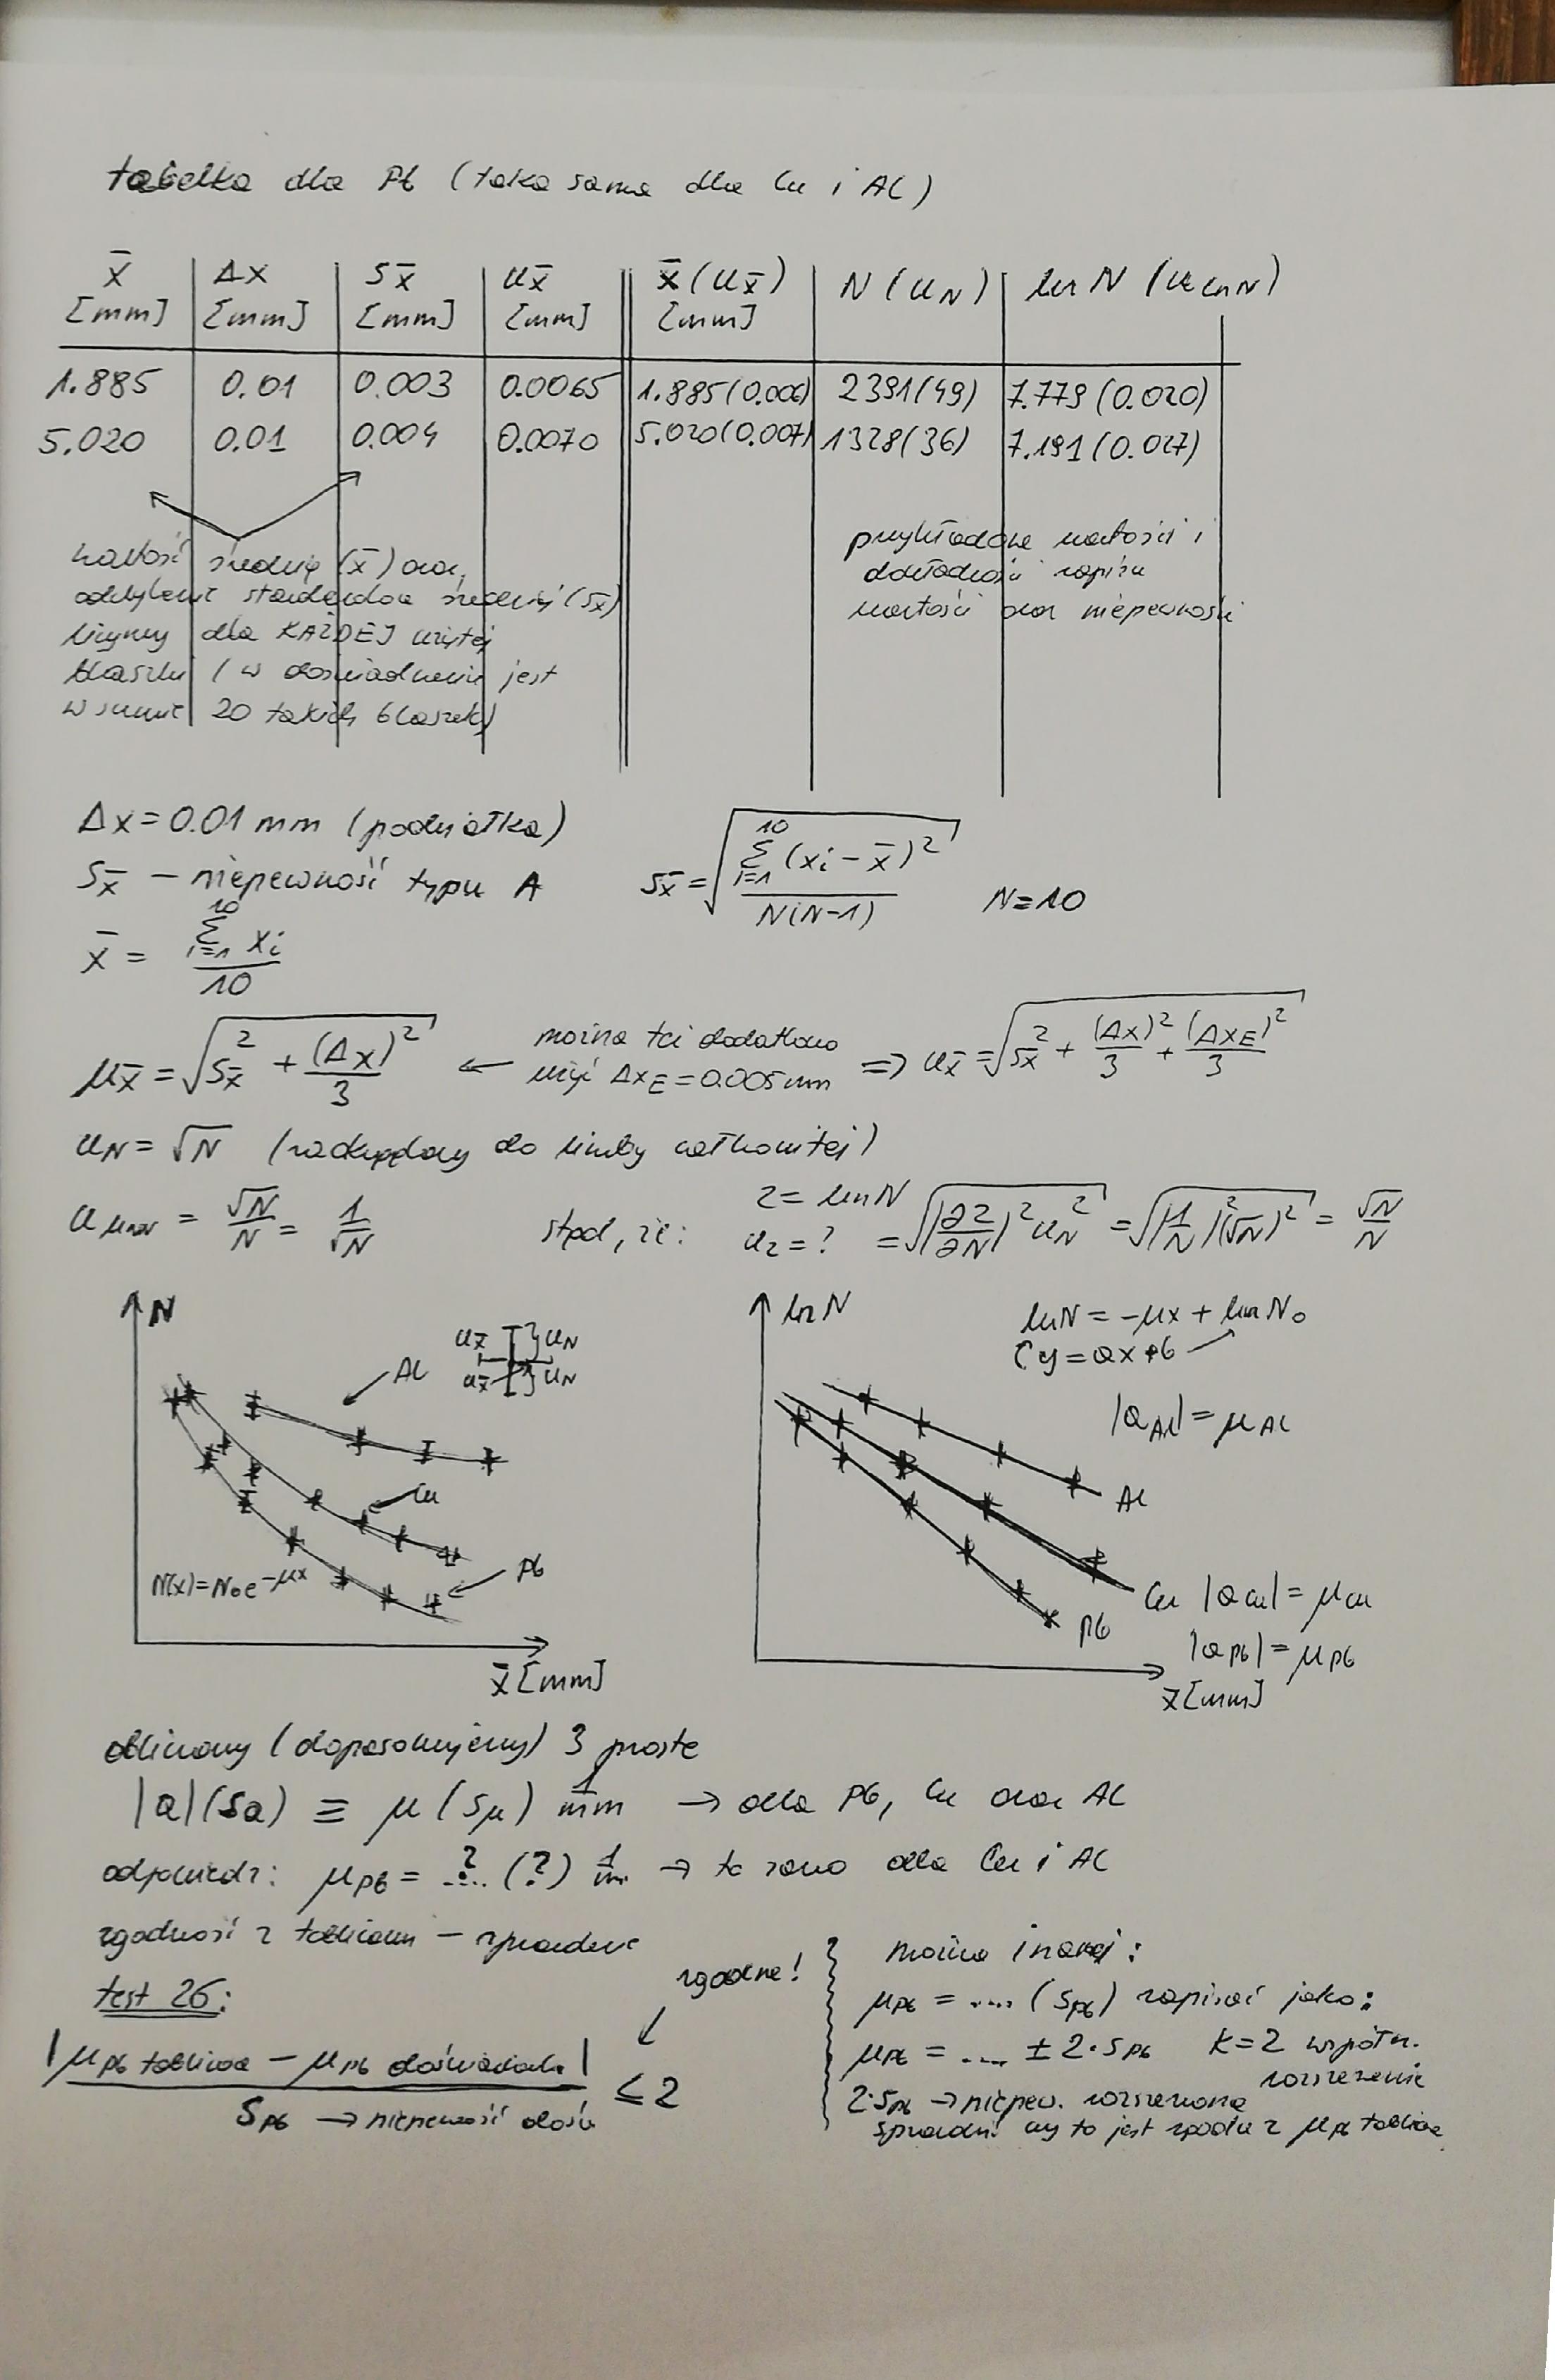 tabelka dla Pb (taka sama dla Cu i Al)
x̄ [mm] | Δx [mm] | Sx̄ [mm] | ux̄ [mm] | x̄ (ux̄) [mm] | N (uN) | ln N (u lnN)
1.885 | 0.01 | 0.003 | 0.0065 | 1.885 (0.006) | 2391 (49) | 7.779 (0.020)
5.020 | 0.01 | 0.004 | 0.0070 | 5.020 (0.007) | 1328 (36) | 7.191 (0.027)
wartość średnią (x̄) oraz
odchylenie standardowe średniej (Sx̄)
liczymy dla KAŻDEJ użytej
blaszki (w doświadczeniu jest
w sumie 20 takich blaszek)
przykładowe wartości i
dokładności zapisu
wartości oraz niepewności
Δx = 0.01 mm (podziałka)
Sx̄ – niepewność typu A
Sx̄ = √(Σ_{i=1}^{10} (xi – x̄)² / N(N–1))
N=10
x̄ = Σ_{i=1}^{10} xi / 10
ux̄ = √(Sx̄² + (Δx)²/3)
← można też dodatkowo
użyć ΔxE = 0.005 mm
=> ux̄ = √(Sx̄² + (Δx)²/3 + (ΔxE)²/3)
uN = √N (zaokrąglamy do liczby całkowitej)
u lnN = √N/N = 1/√N
stąd, że:
z = ln N
uz = ? = √((∂z/∂N)² uN²) = √((1/N)² (√N)²) = √N/N
N
Al
ux̄ uN
ux̄ uN
Cu
Pb
N(x) = N₀e^-μx
x̄ [mm]
ln N
ln N = -μx + ln N₀
(y = ax + b
|aAl| = μAl
Al
Cu |aCu| = μCu
Pb |aPb| = μPb
x̄ [mm]
obliczamy (dopasowujemy) 3 proste
|a| (Sa) ≡ μ (Sμ) 1/mm → dla Pb, Cu oraz Al
odpowiedź: μPb = ..?.. (?) 1/m → to samo dla Cu i Al
zgodność z tablicami – sprawdzenie
test 2σ:
zgodne!
|μPb tablicowe – μPb doświadcz.| / SPb ≤ 2
→ niepewność dośw.
można inaczej:
μPb = .... (SPb) zapisać jako:
μPb = .... ± 2·SPb k=2 współcz.
rozszerzenia
2·SPb → niepew. rozszerzona
sprawdzić czy to jest zgodne z μPb tablicowe